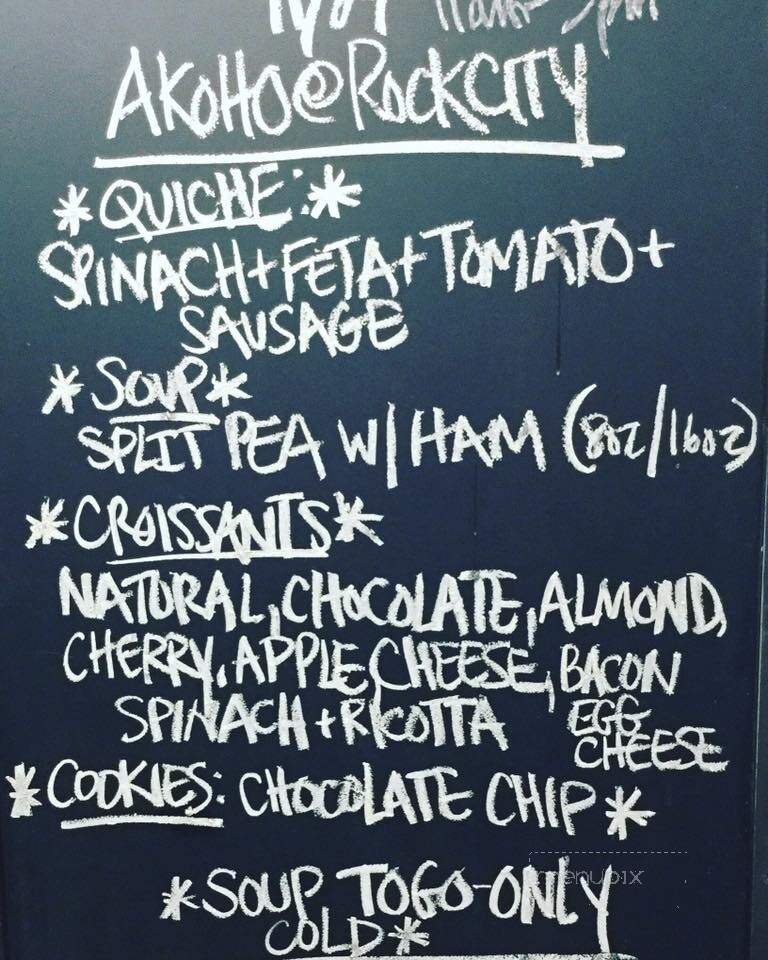 AKOHO@ROCKCITY
*QUICHE:*
SPINACH+FETA+TOMATO+
SAUSAGE
*SOUP*
SPLIT PEA W/HAM (8oz/16oz)
*CROISSANTS*
NATURAL, CHOCOLATE, ALMOND,
CHERRY, APPLE, CHEESE, BACON
SPINACH+RICOTTA EGG
CHEESE
*COOKIES: CHOCOLATE CHIP*
menupix
*SOUP TOGO-ONLY
COLD*